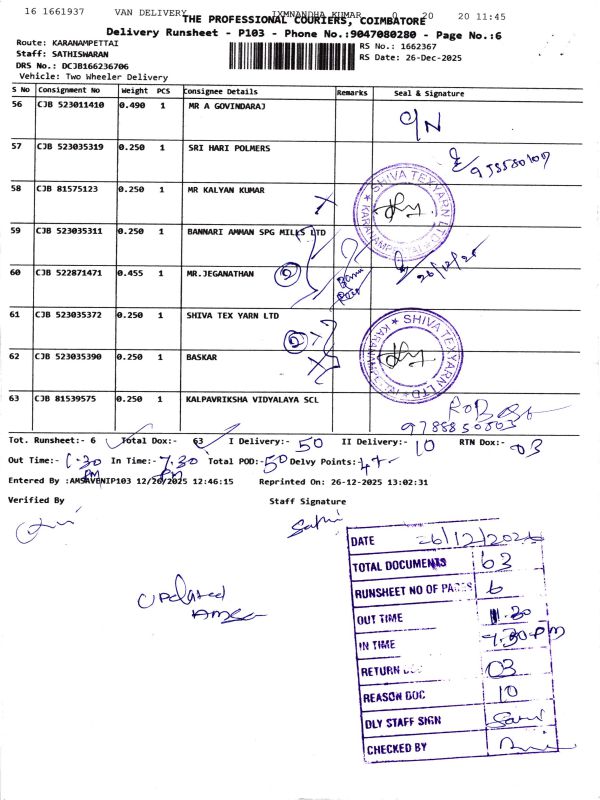 16 1661937 VAN DELIVERY IXMNANDHA KUMAR 0 20 20 11:45
THE PROFESSIONAL COURIERS, COIMBATORE
Delivery Runsheet - P103 - Phone No.:9047080280 - Page No.:6
Route: KARANAMPETTAI
Staff: SATHISWARAN
DRS No.: DCJB166236706
Vehicle: Two Wheeler Delivery
RS No.: 1662367
RS Date: 26-Dec-2025
S No Consignment No Weight PCS Consignee Details Remarks Seal & Signature
56 CJB 523011410 0.490 1 MR A GOVINDARAJ
C/N
57 CJB 523035319 0.250 1 SRI HARI POLMERS
58 CJB 81575123 0.250 1 MR KALYAN KUMAR
SHIVA TEXYARN LTD
59 CJB 523035311 0.250 1 BANNARI AMMAN SPG MILLS LTD
60 CJB 522871471 0.455 1 MR.JEGANATHAN
2
26/12/25
61 CJB 523035372 0.250 1 SHIVA TEX YARN LTD
2
SHIVA TEXYARN LTD
62 CJB 523035390 0.250 1 BASKAR
63 CJB 81539575 0.250 1 KALPAVRIKSHA VIDYALAYA SCL
9788850803
Tot. Runsheet:- 6 Total Dox:- 63 I Delivery:- 50 II Delivery:- 10 RTN Dox:- 03
Out Time:- 1.30 PM In Time:- 7.30 PM Total POD:- 50 Delvy Points:- 47
Entered By :AMSAVENIP103 12/26/2025 12:46:15 Reprinted On: 26-12-2025 13:02:31
Verified By Staff Signature
Sathi
Updated
Amsa
DATE 26/12/2025
TOTAL DOCUMENTS 63
RUNSHEET NO OF PAGES 6
OUT TIME 1.30
IN TIME 7.30 PM
RETURN DOC 03
REASON DOC 10
DLY STAFF SIGN
CHECKED BY